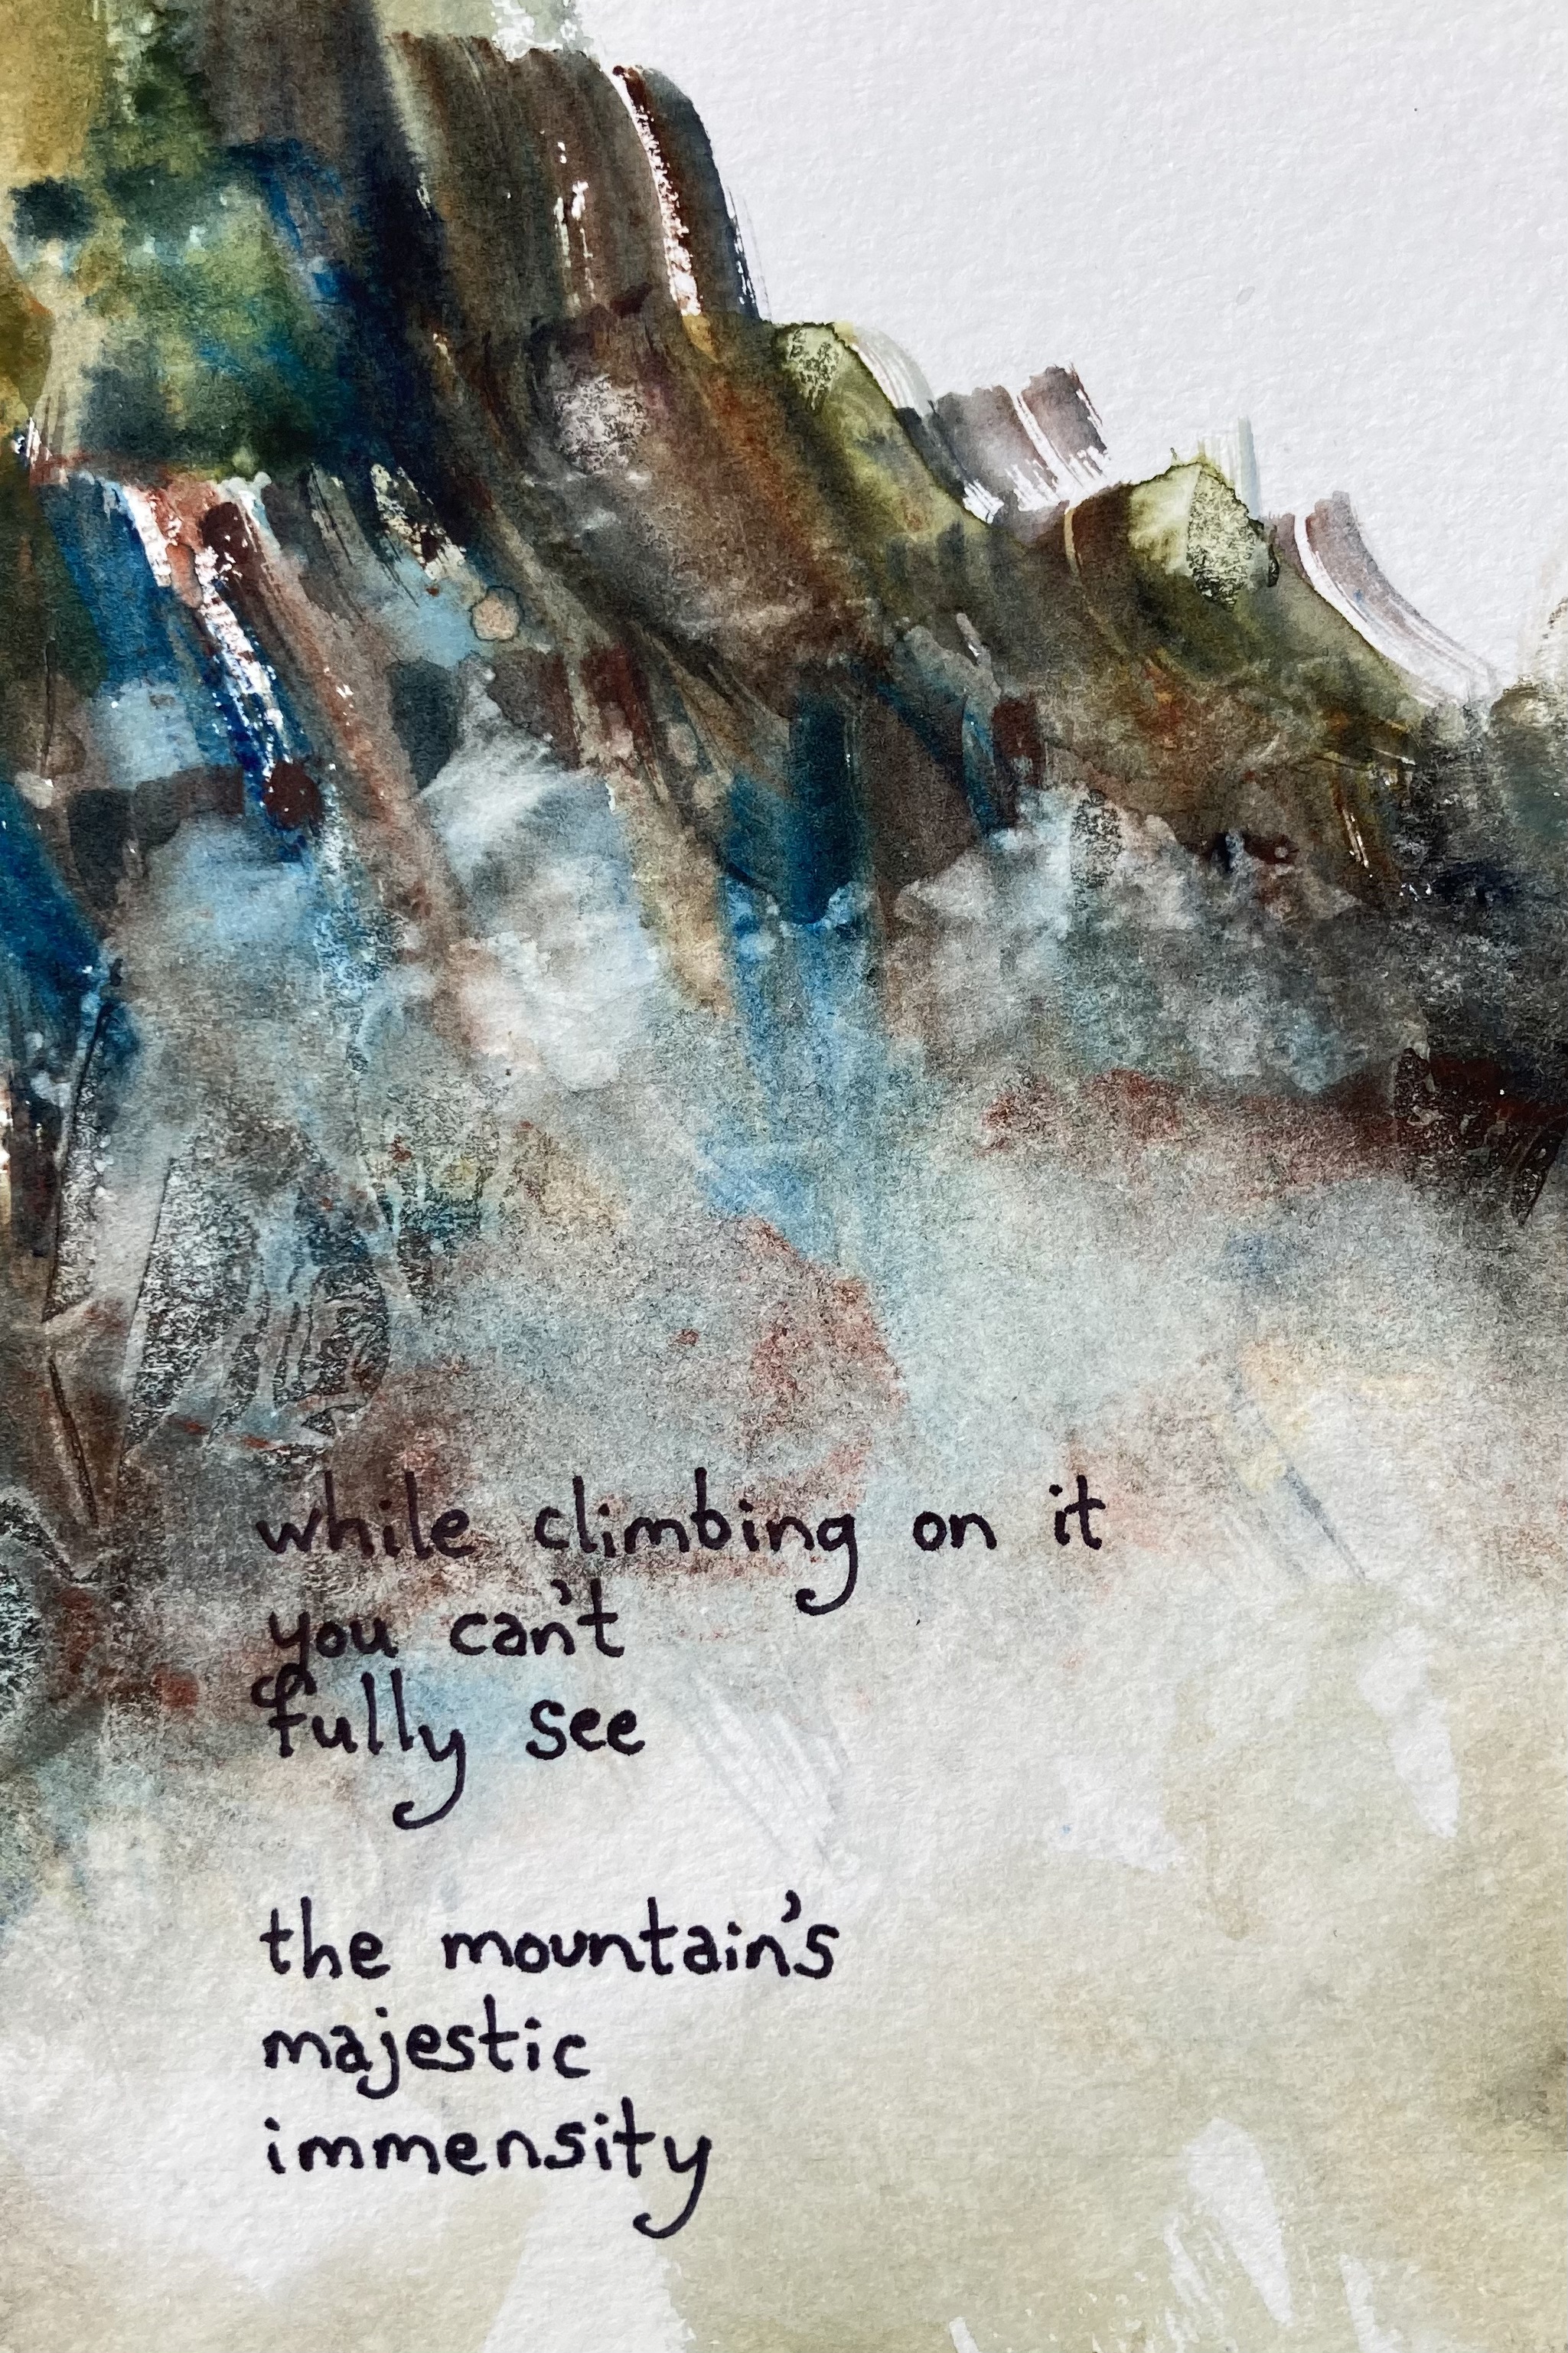 while climbing on it
you can't
fully see
the mountain's
majestic
immensity